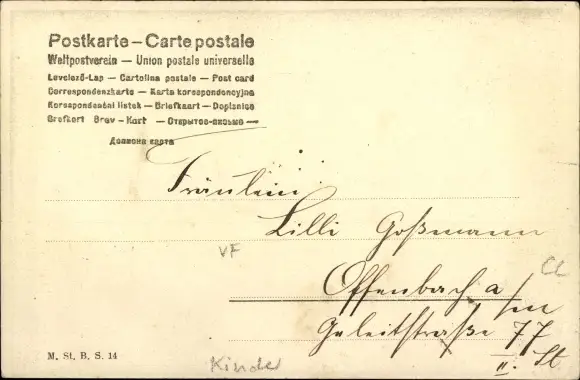 Postkarte — Carte postale
Weltpostverein — Union postale universelle
Levelező-Lap — Cartolina postale — Post card
Correspondenzkarte — Karta korespondencyjna
Korespondenční lístek — Briefkaart — Dopisnice
Brefkort Brev-Kort — Открытое-письмо —
Дописна карта
Fräulein
Lilli Goßmann
VF
CL
Offenbach a/m
Geleitstraße 77
II. St
M. St. B. S. 14
Kinder